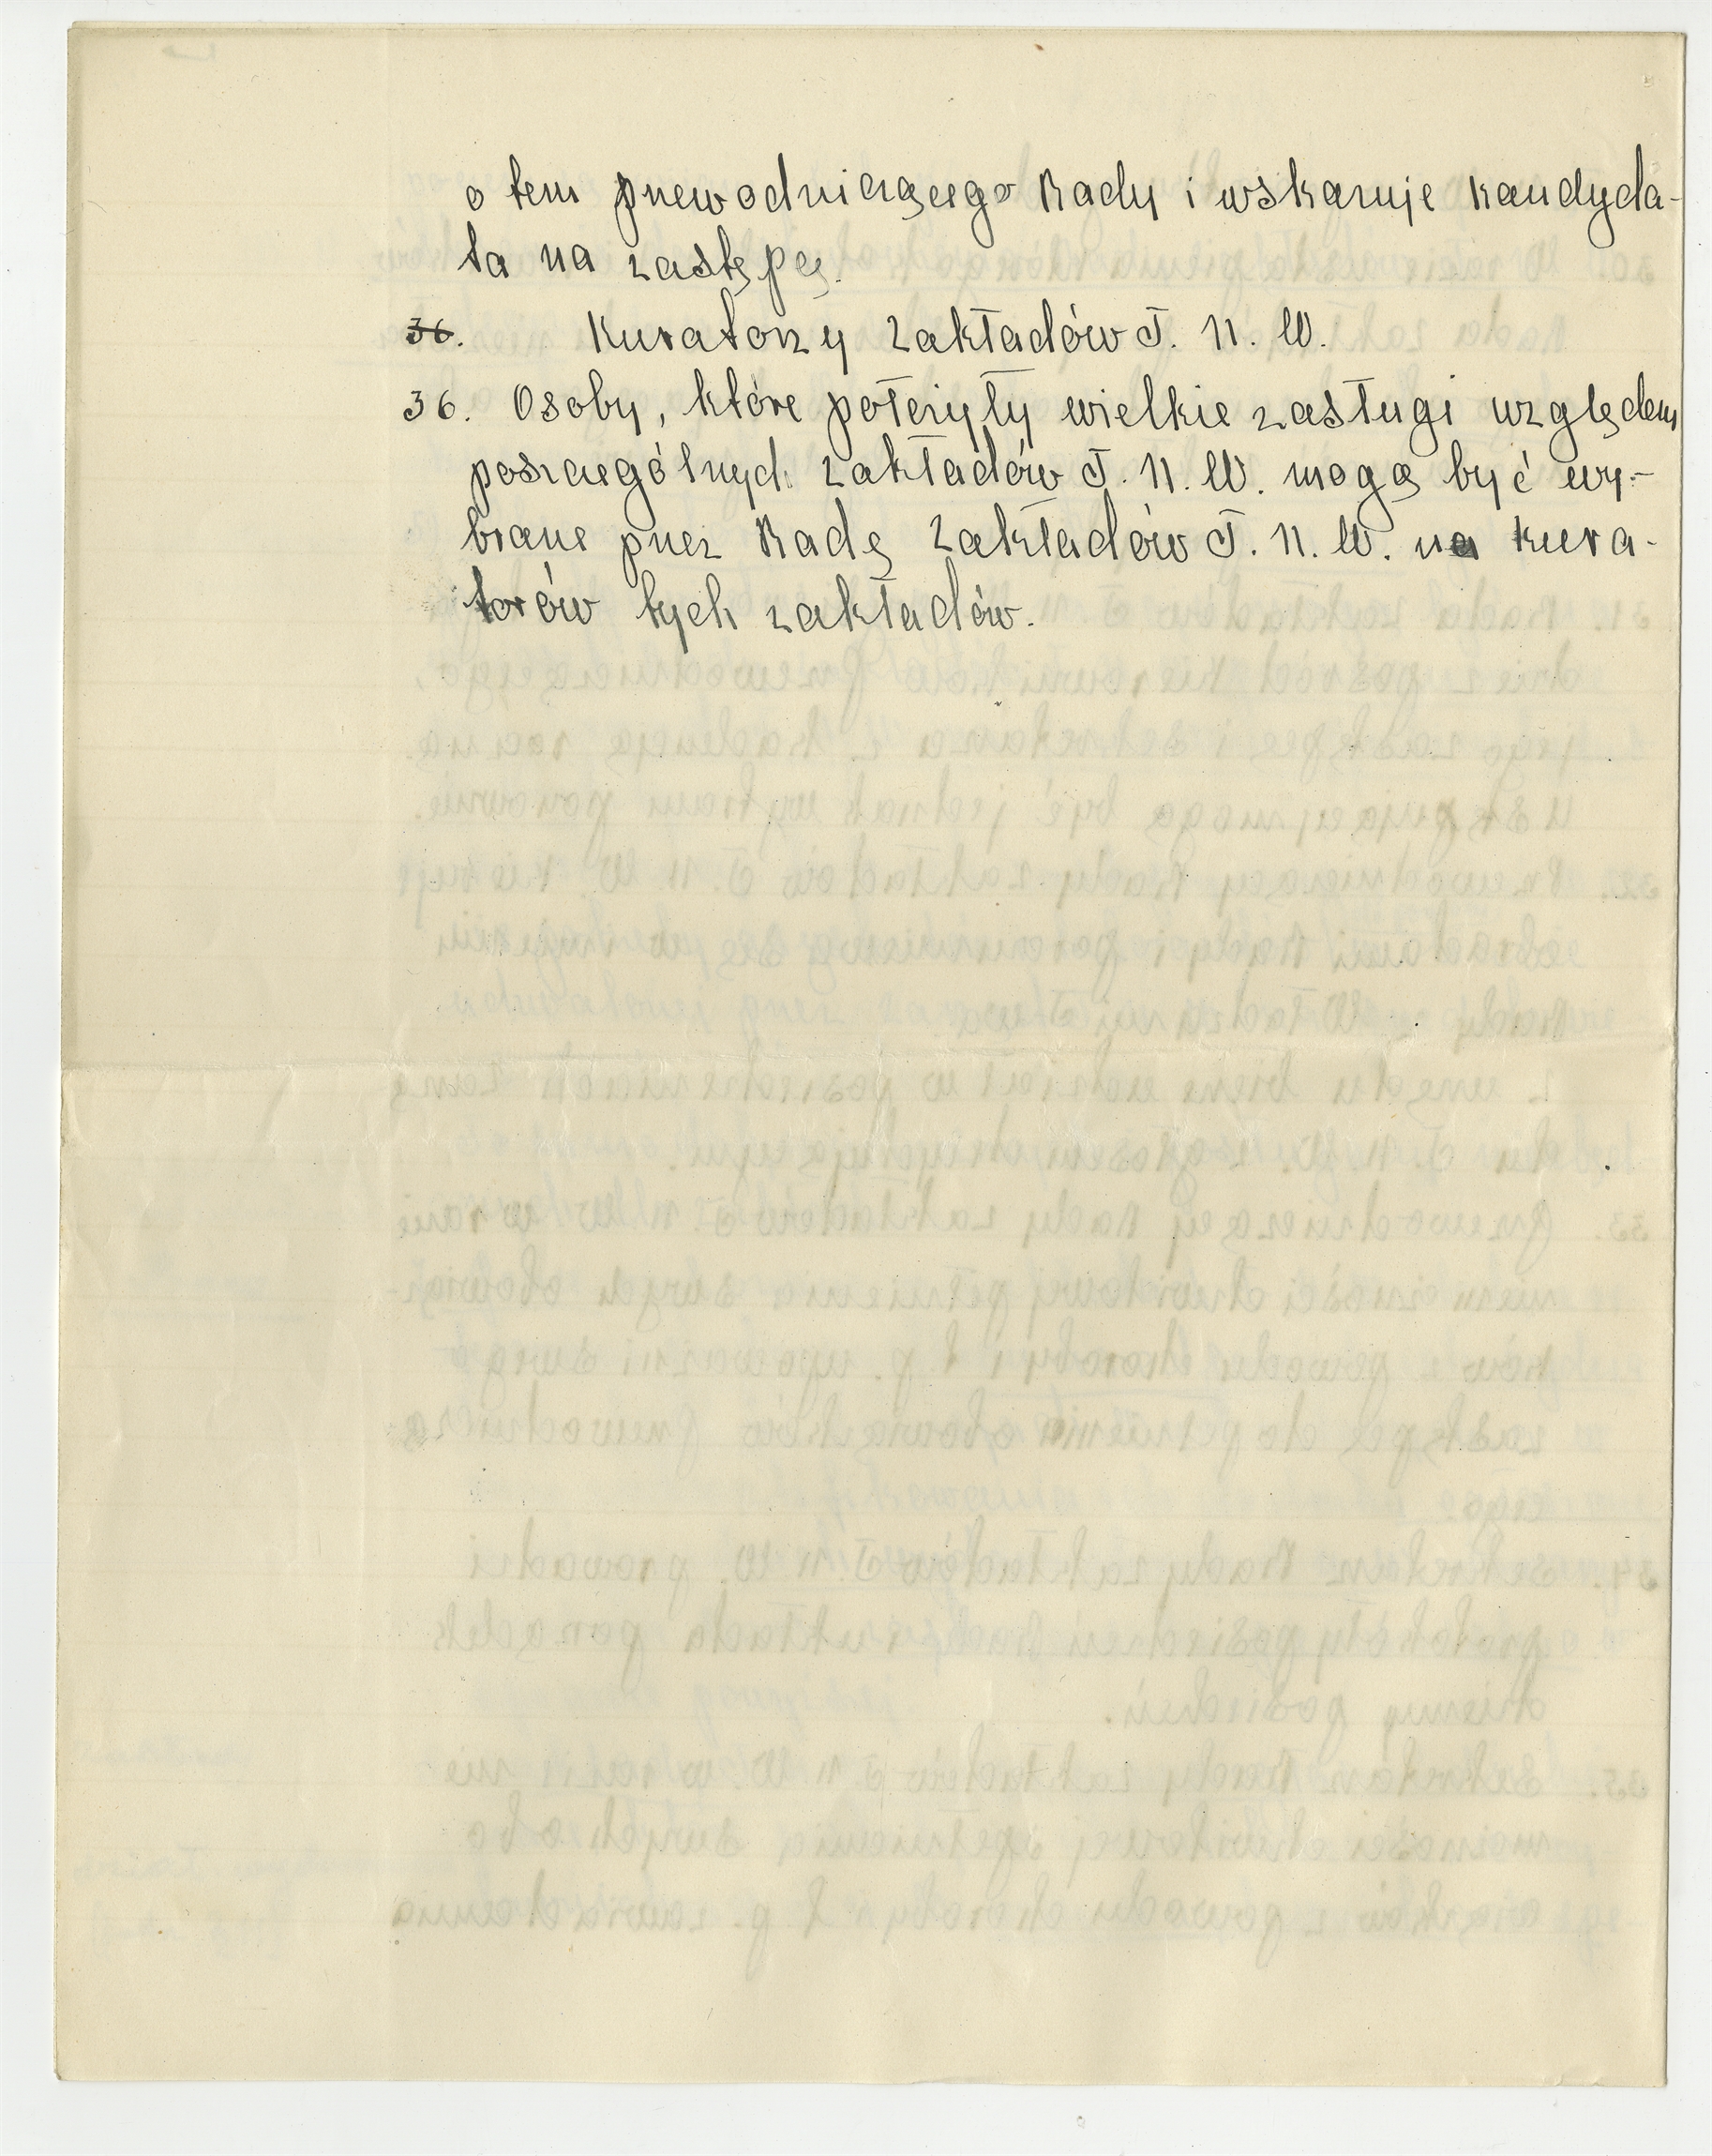 o tem przewodniczącego Rady i wskazuje kandyda-
ta na zastępcę.
36. Kuratorzy Zakładów T. N. W.
36. Osoby, które położyły wielkie zasługi względem
poszczególnych Zakładów T. N. W. mogą być wy-
brane przez Radę Zakładów T. N. W. na kura-
torów tych zakładów.